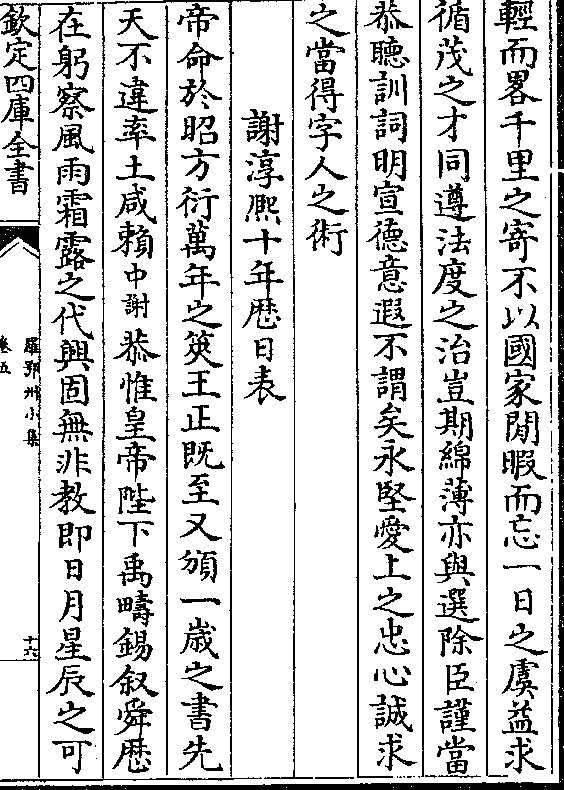 輕而畧千里之寄不以國家閒暇而忘一日之虞益求
循茂之才同遵法度之治豈期綿薄亦與選除臣謹當
恭聽訓詞明宣德意遐不謂矣永堅愛上之忠心誠求
之當得字人之術
謝淳熈十年歴日表
帝命於昭方衍萬年之筴王正既至又頒一歳之書先
天不違率土咸賴中謝恭惟皇帝陛下禹疇錫叙舜歴
在躬察風雨霜露之代興固無非教即日月星辰之可
欽定四庫全書
羅鄂州小集
卷五
十六